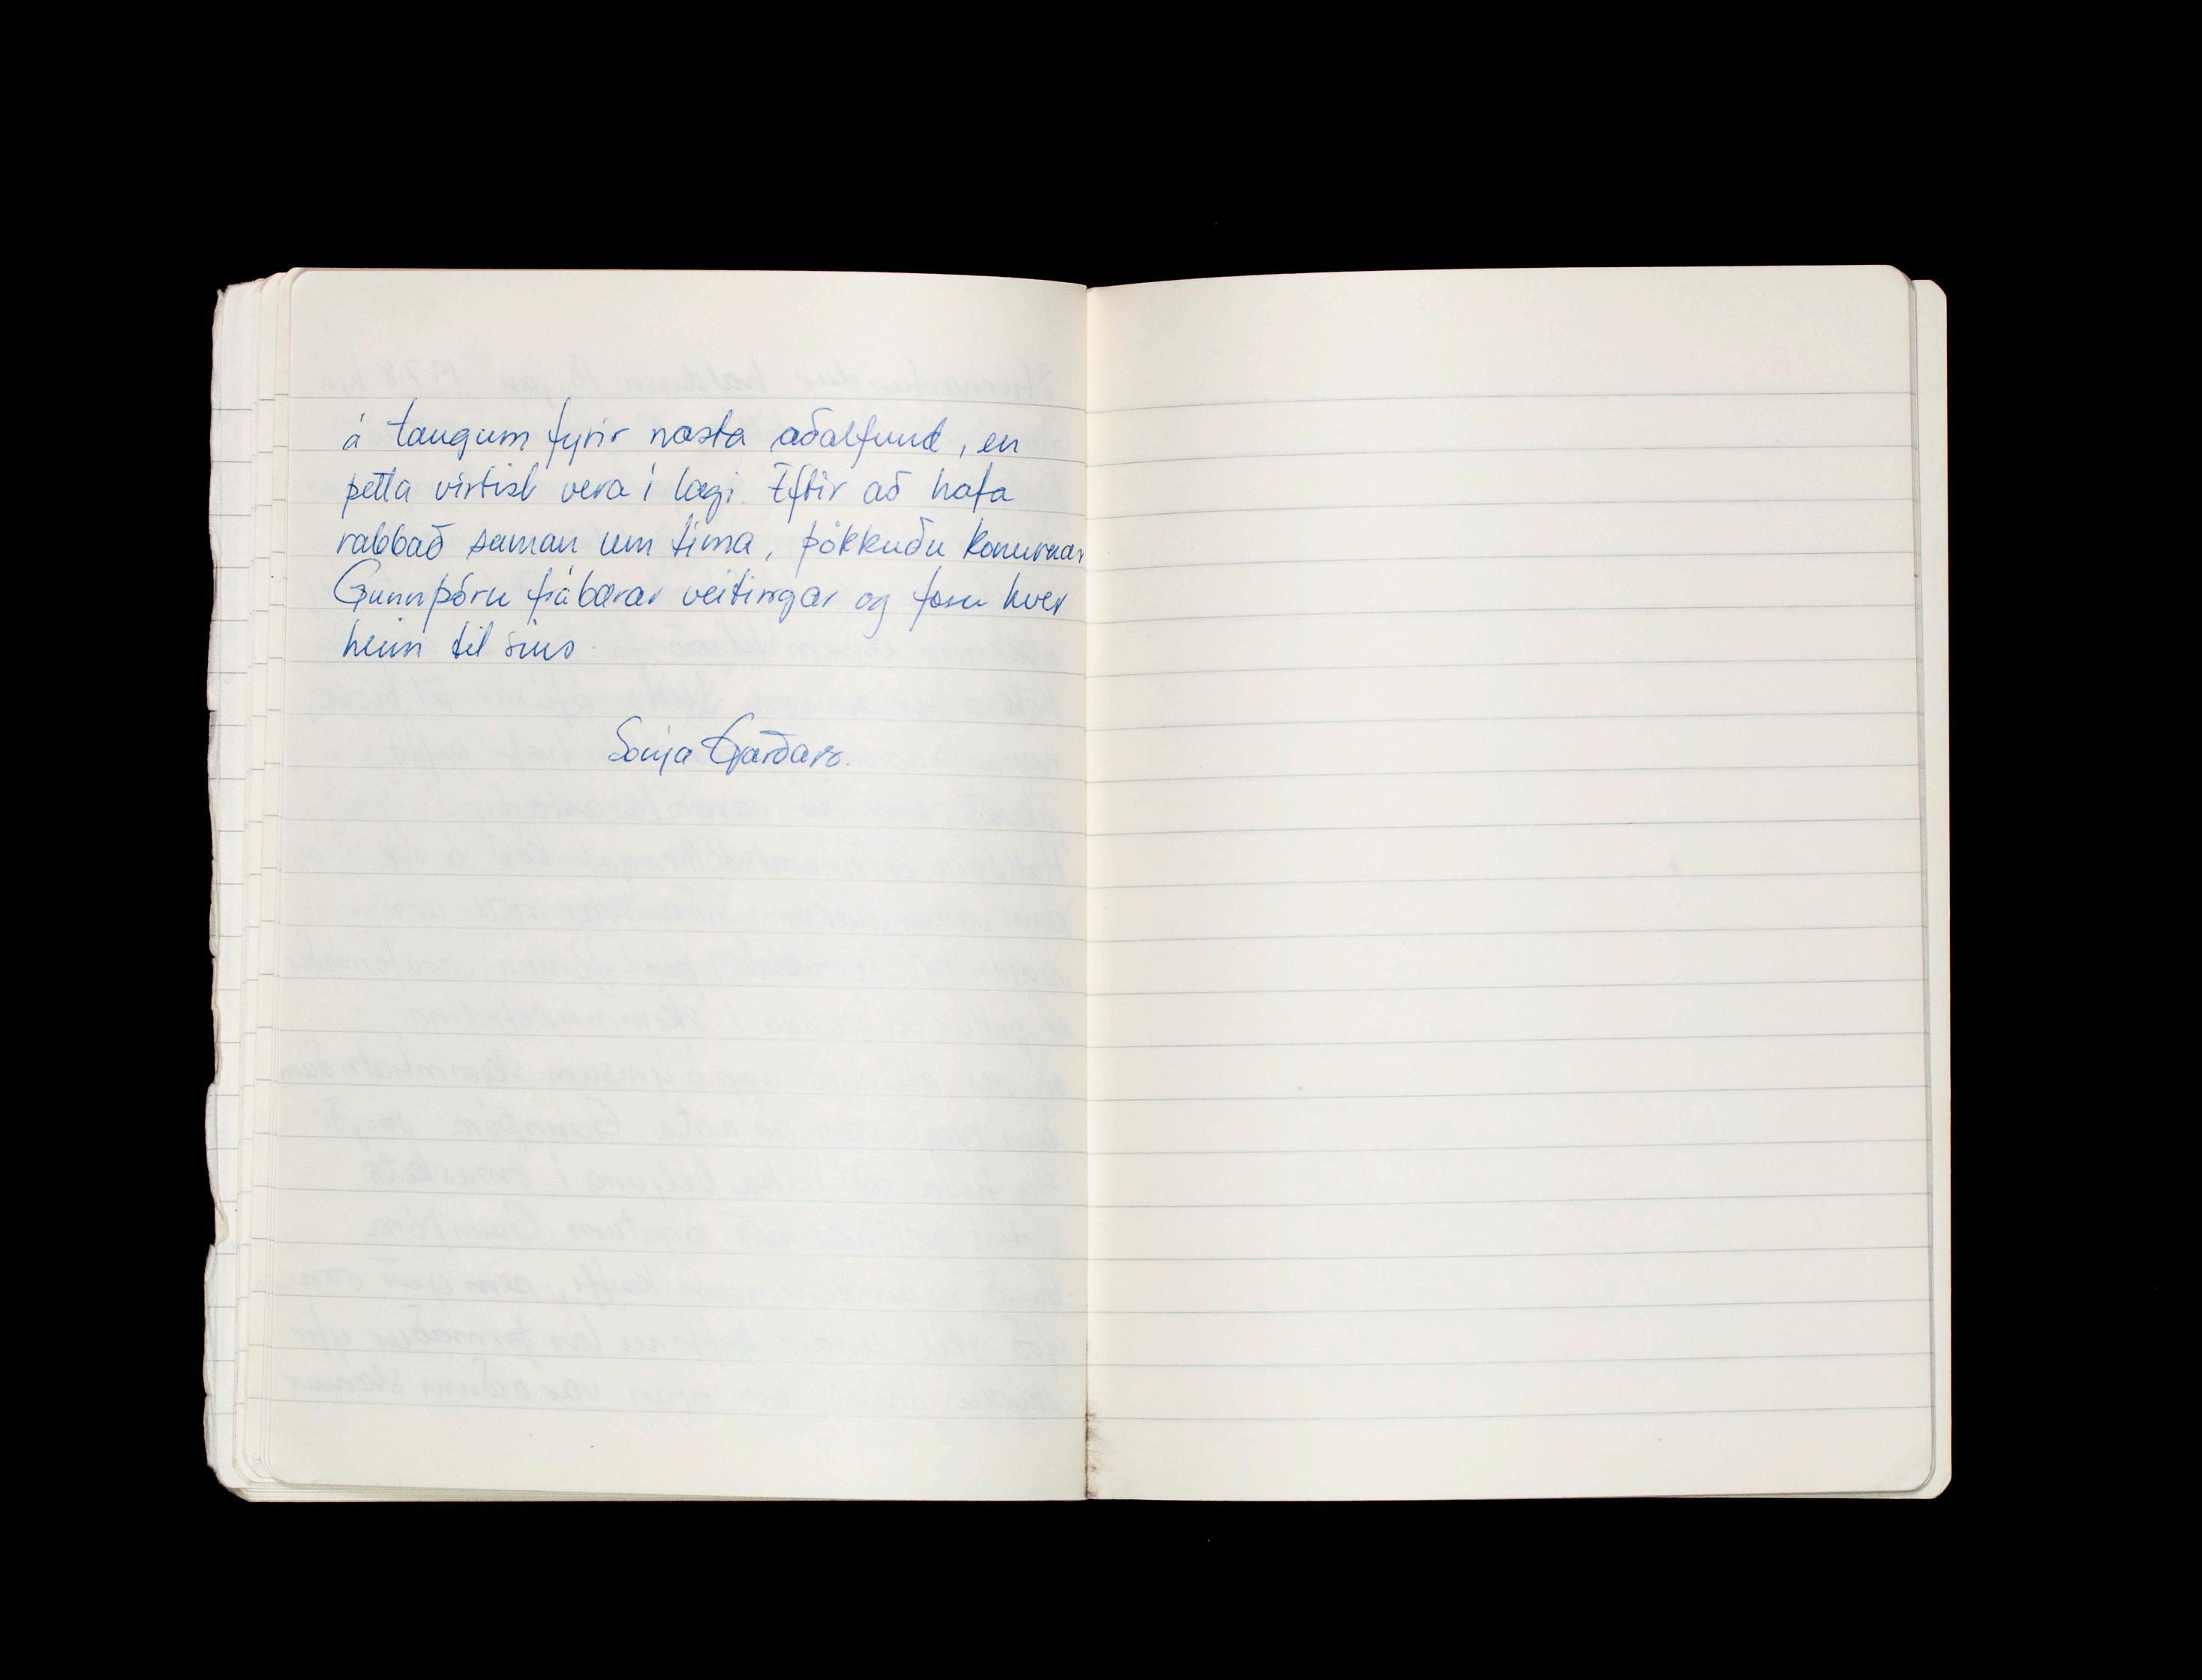 á taugum fyrir næsta aðalfund, en
þetta virtist vera í lagi. Eftir að hafa
rabbað saman um tíma, þökkuðu konurnar
Gunnþóru frábærar veitingar og fóru hver
heim til síns.
Sonja Garðars.